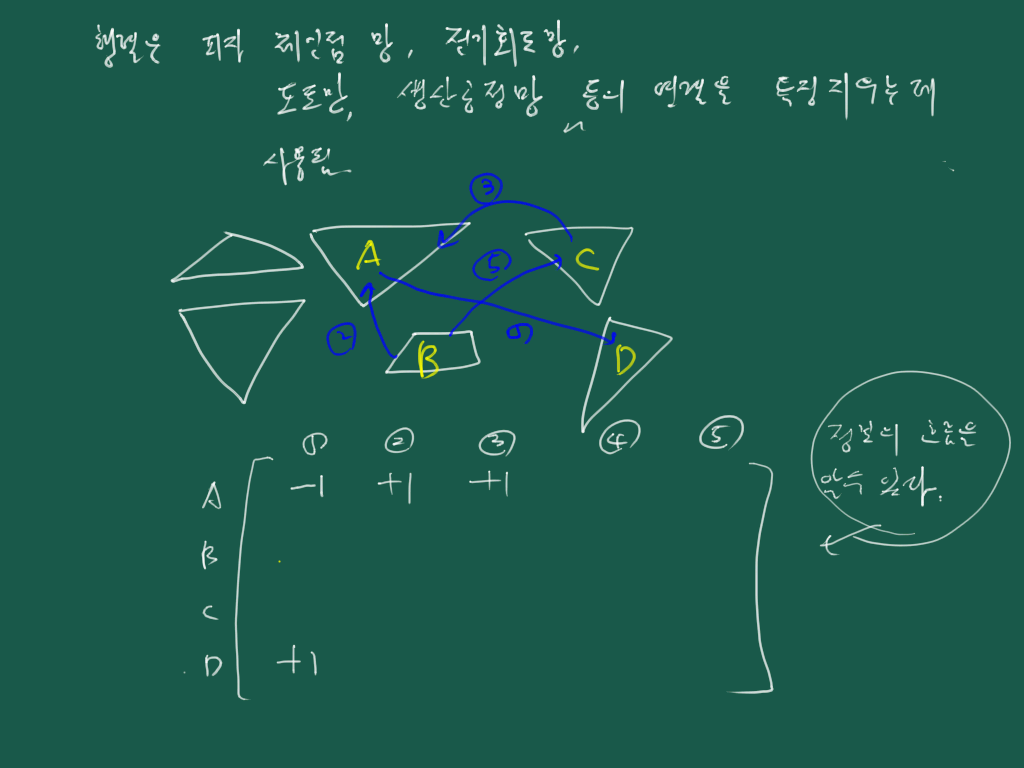 행렬은 피자 체인점 망, 전기회로망,
도로망, 생산공정망 등의 연결을 특징지우는데
사용됨
③
A ⑤ C
② B ① D
① ② ③ ④ ⑤
A -1 +1 +1
B
C
D +1
정보의 흐름을
알수 있다.